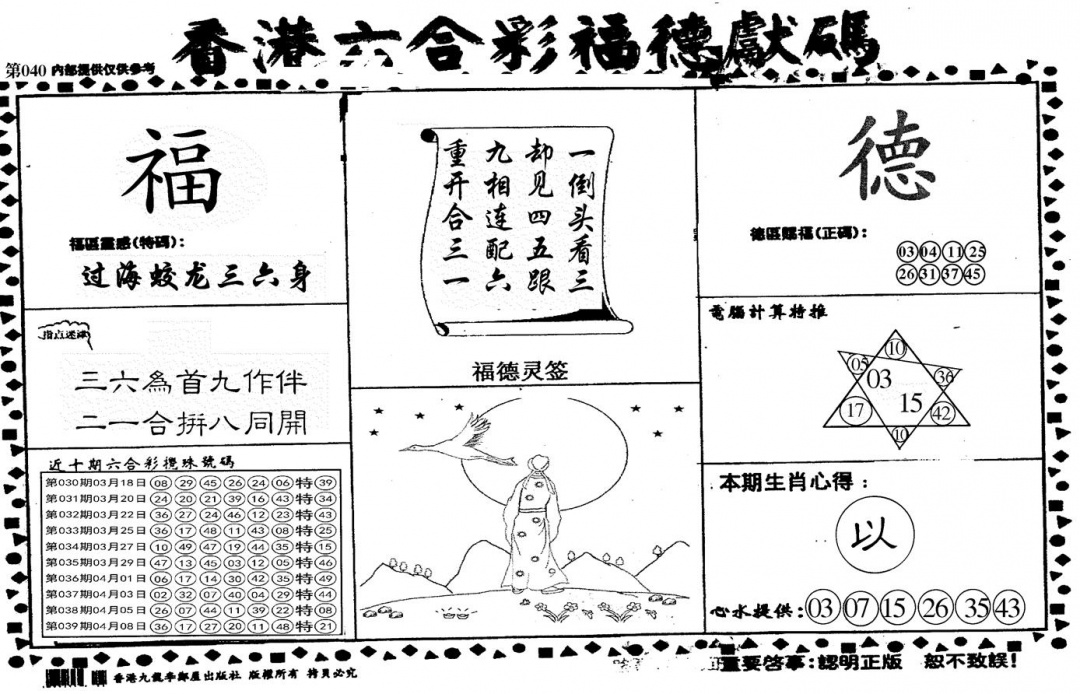 香港六合彩福德獻碼
第040 内部提供仅供参考
福
福區靈感(特碼):
过海蛟龙三六身
指点迷津
三六為首九作伴
二一合拼八同開
近十期六合彩攪珠號碼
第030期03月18日 08 29 45 26 24 06 特 39
第031期03月20日 24 20 21 39 16 43 特 34
第032期03月22日 36 27 24 46 12 23 特 43
第033期03月25日 36 17 48 11 43 08 特 25
第034期03月27日 10 49 47 19 44 35 特 15
第035期03月29日 47 13 45 03 12 05 特 46
第036期04月01日 06 17 14 30 42 35 特 49
第037期04月03日 02 32 07 40 04 29 特 44
第038期04月05日 26 07 44 11 39 22 特 08
第039期04月08日 36 17 27 20 11 48 特 21
一倒头看三
却见四五跟
九相连配六
重开合三一
福德灵签
德
德區賜福(正碼):
03 04 11 25
26 31 37 45
電腦計算特推
10
05 03 36
17 15 42
10
本期生肖心得:
以
心水提供: 03 07 15 26 35 43
重要啓事:認明正版 恕不致誤!
香港九龍李鄭屋出版社 版權所有 拷貝必究